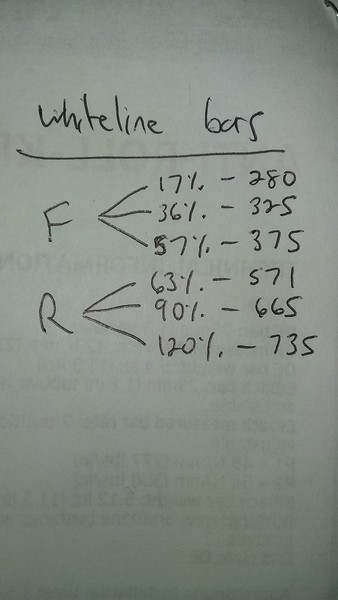 Whiteline bars
17% - 280
F 36% - 325
57% - 375
63% - 571
R 90% - 665
120% - 735